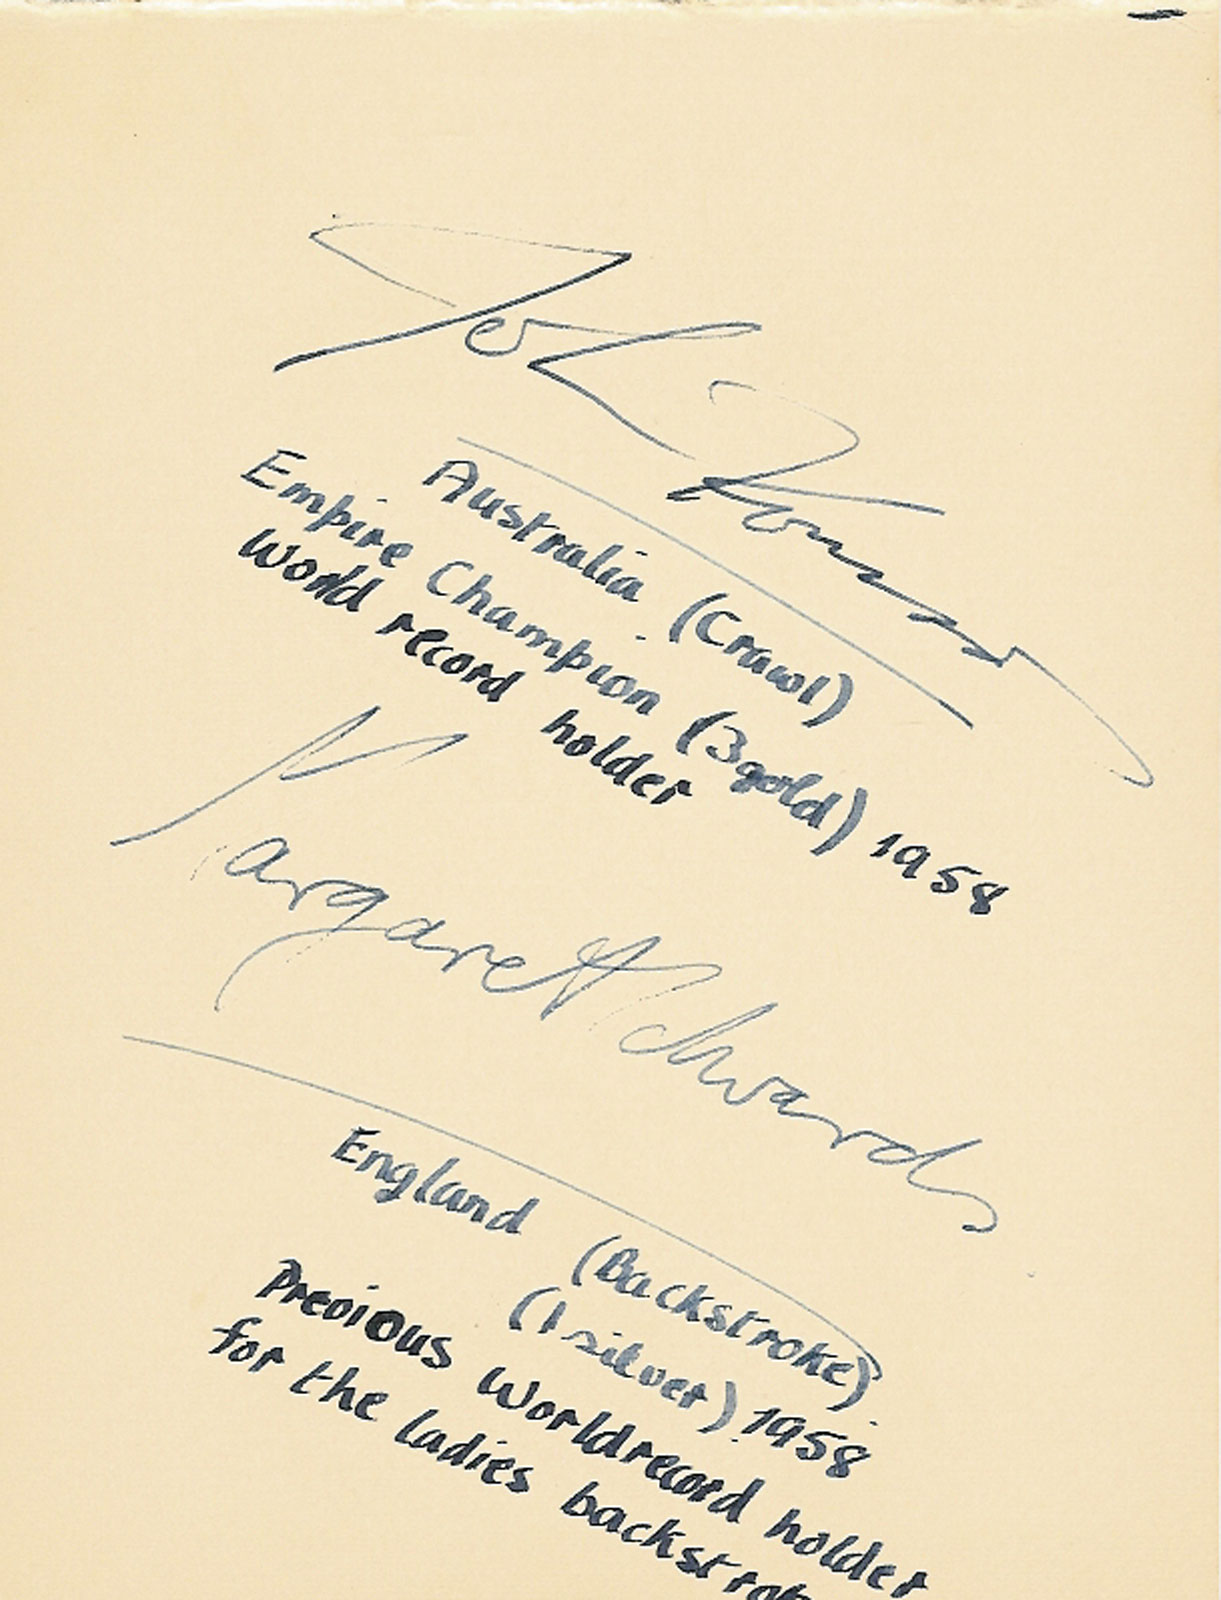 John Konrads
Australia (Crawl)
Empire Champion (3 gold) 1958
World record holder
Margaret Edwards
England (Backstroke)
(1 silver) 1958
Previous Worldrecord holder
for the ladies backstroke